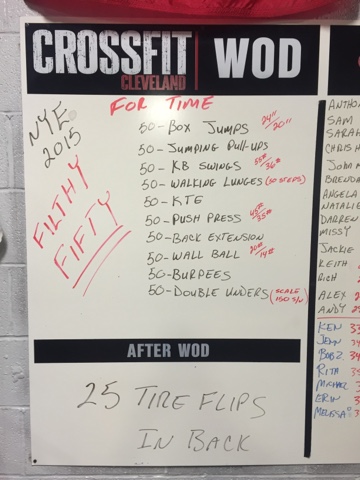 CROSSFIT
CLEVELAND
WOD
NYE
2015
FILTHY
FIFTY
FOR TIME
50-BOX JUMPS 24"/20"
50-JUMPING PULL-UPS
50-KB SWINGS 55#/36#
50-WALKING LUNGES (50 STEPS)
50-KTE
50-PUSH PRESS 45#/35#
50-BACK EXTENSION
50-WALL BALL 20#/14#
50-BURPEES
50-DOUBLE UNDERS (SCALE 150 S/U)
AFTER WOD
25 TIRE FLIPS
IN BACK
SAM
SARAH
CHRIS H
JOHN M
ANGELA
NATALIE
DARREN
MISSY
JACKIE
KEITH
RICH
ALEX
ANDY
KEN
JENN
BOBZ
RITA
MICHAEL
ERIN
MELISSA